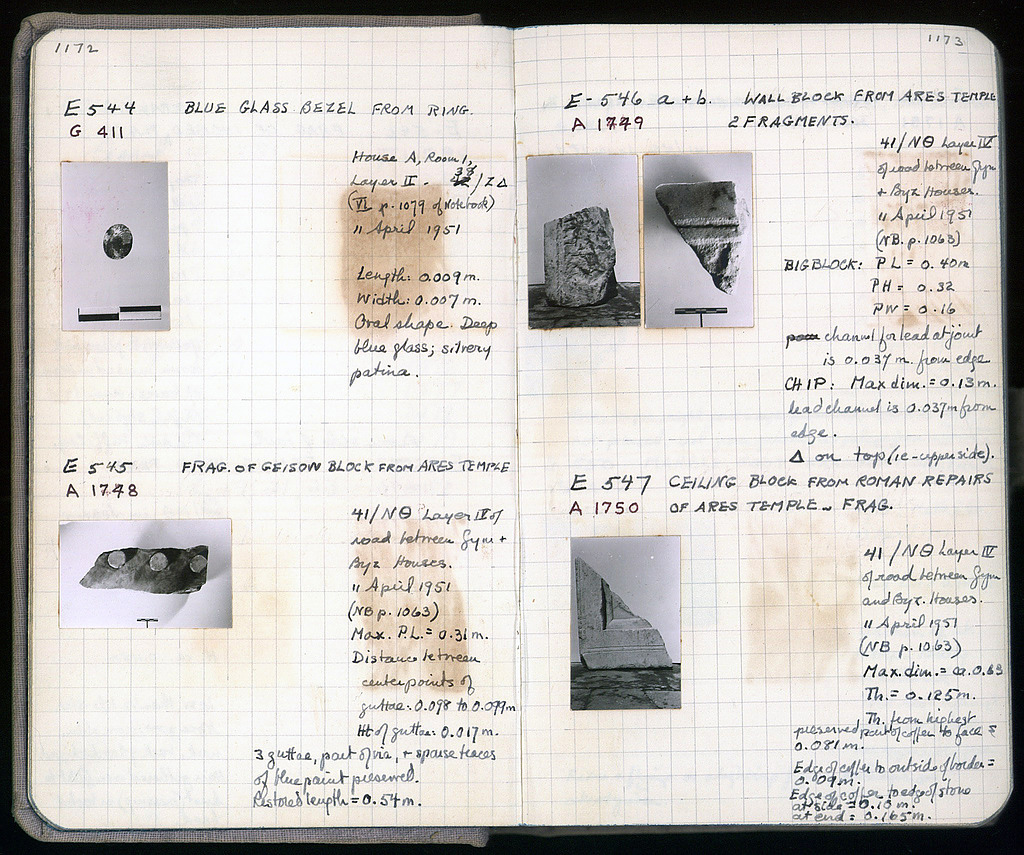 1172
E 544 BLUE GLASS BEZEL FROM RING.
G 411
House A, Room 1,
Layer II. 38/ZΔ
(VI p. 1079 of Notebook)
11 April 1951
Length: 0.009 m.
Width: 0.007 m.
Oval shape. Deep
blue glass; silvery
patina.
E 545 FRAG. OF GEISON BLOCK FROM ARES TEMPLE
A 1748
41/NΘ Layer IV of
road between Gym +
Byz Houses.
11 April 1951
(NB p. 1063)
Max. P.L. = 0.31 m.
Distance between
centerpoints of
guttae: 0.098 to 0.099 m
Ht of guttae: 0.017 m.
3 guttae, part of via, + sparse traces
of blue paint preserved.
Restored length = 0.54 m.
1173
E-546 a + b. WALL BLOCK FROM ARES TEMPLE
A 1749 2 FRAGMENTS.
41/NΘ Layer IV
of road between Gym
+ Byz Houses.
11 April 1951
(NB. p. 1063)
BIG BLOCK: PL = 0.40m
PH = 0.32
PW = 0.16
channel for lead at joint
is 0.037 m. from edge
CHIP: Max dim. = 0.13 m.
lead channel is 0.037m from
edge.
Δ on top (ie - upper side).
E 547 CEILING BLOCK FROM ROMAN REPAIRS
A 1750 OF ARES TEMPLE - FRAG.
41/NΘ Layer IV
of road between Gym
and Byz. Houses.
11 April 1951
(NB p. 1063)
Max. dim. = ca. 0.63
Th. = 0.125 m.
Th. from highest
preserved part of coffer to face =
0.081 m.
Edge of coffer to outside of border =
0.09 m.
Edge of coffer to edge of stone
at side = 0.10 m.
at end = 0.165 m.